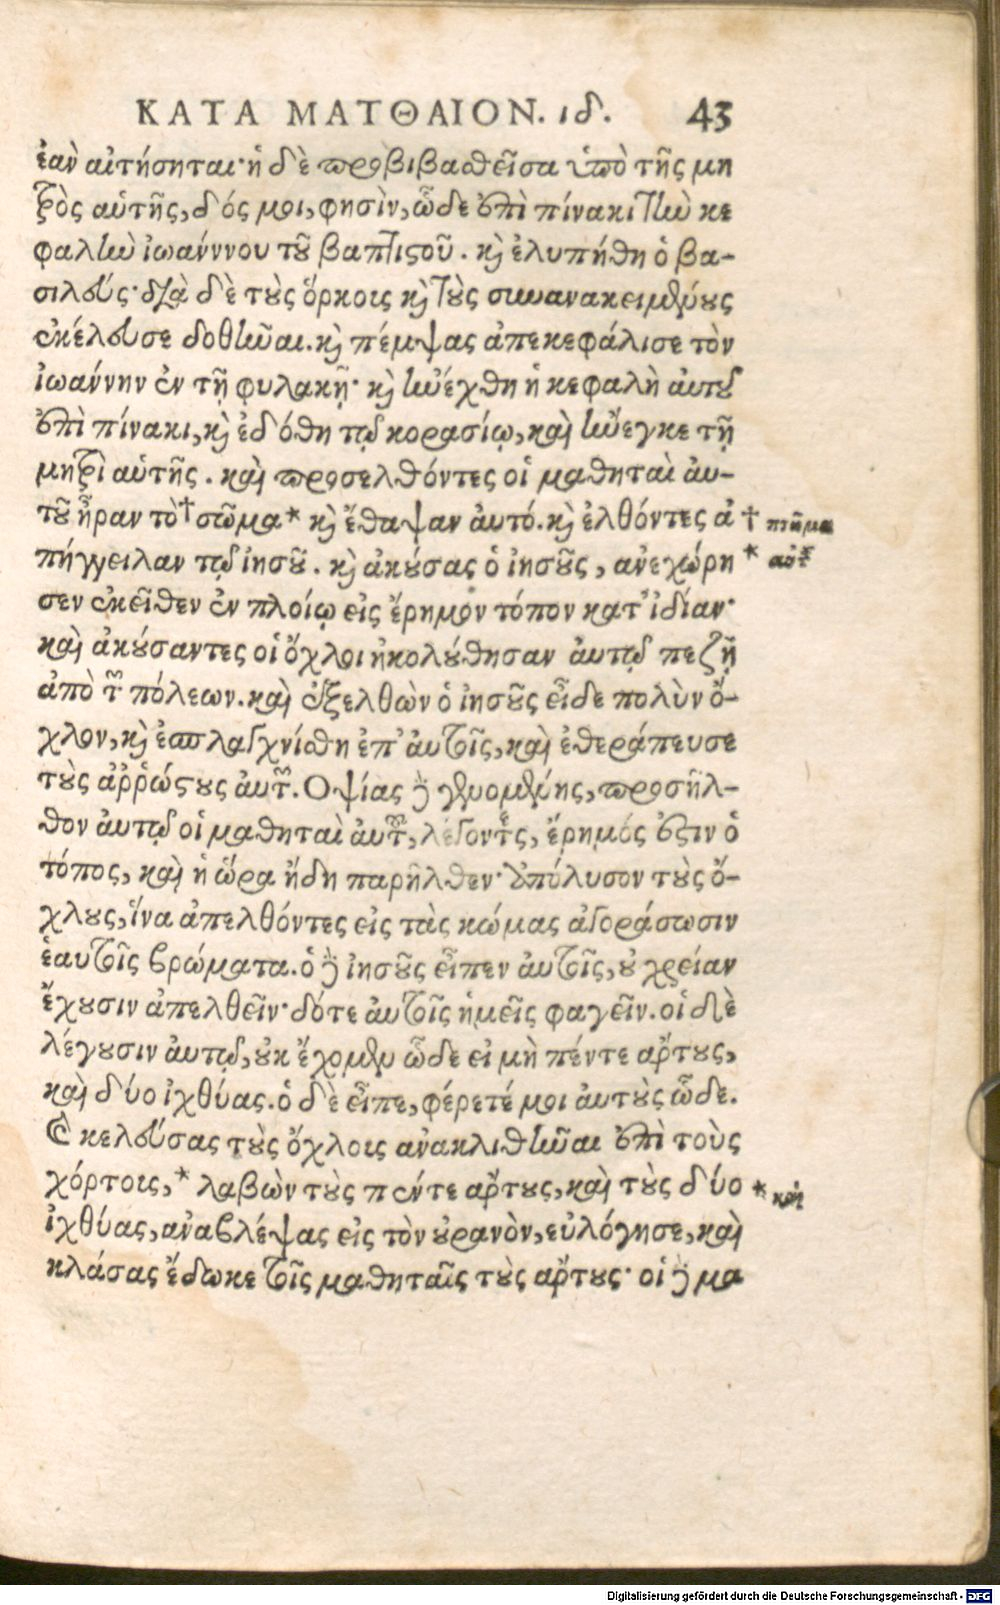 ΚΑΤΑ ΜΑΤΘΑΙΟΝ. ιδ. 43
ἐὰν αἰτήσηται· ἡ δὲ προβιβασθεῖσα ὑπὸ τῆς μη
τρὸς αὑτῆς, δός μοι, φησὶν, ὧδε ἐπὶ πίνακι τὴν κε
φαλὴν ἰωάνννου τοῦ βαπτιστοῦ. καὶ ἐλυπήθη ὁ βα-
σιλεύς· διὰ δὲ τοὺς ὅρκοις καὶ τοὺς συνανακειμένους
ἐκέλευσε δοθῆναι. καὶ πέμψας ἀπεκεφάλισε τὸν
ἰωάννην ἐν τῇ φυλακῇ· καὶ ἠνέχθη ἡ κεφαλὴ αὐτοῦ
ἐπὶ πίνακι, καὶ ἐδόθη τῷ κορασίῳ, καὶ ἤνεγκε τῇ
μητρὶ αὑτῆς. καὶ προσελθόντες οἱ μαθηταὶ αὐ-
τοῦ ἦραν τὸ † σῶμα * καὶ ἔθαψαν αὐτό. καὶ ἐλθόντες ἀ † πτῶμα
πήγγειλαν τῷ ἰησοῦ. καὶ ἀκούσας ὁ ἰησοῦς, ἀνεχώρη * αὐτοῦ
σεν ἐκεῖθεν ἐν πλοίῳ εἰς ἔρημον τόπον κατ' ἰδίαν·
καὶ ἀκούσαντες οἱ ὄχλοι ἠκολούθησαν αὐτῷ πεζῇ
ἀπὸ τῶν πόλεων. καὶ ἐξελθὼν ὁ ἰησοῦς εἶδε πολὺν ὄ-
χλον, καὶ ἐσπλαγχνίσθη ἐπ' αὐτοῖς, καὶ ἐθεράπευσε
τοὺς ἀῤῥώστους αὐτῶν. Οψίας δὲ γενομένης, προσῆλ-
θον αὐτῷ οἱ μαθηταὶ αὐτοῦ, λέγοντες, ἔρημός ἐστιν ὁ
τόπος, καὶ ἡ ὥρα ἤδη παρῆλθεν· ἀπόλυσον τοὺς ὄ-
χλους, ἵνα ἀπελθόντες εἰς τὰς κώμας ἀγοράσωσιν
ἑαυτοῖς βρώματα. ὁ δὲ ἰησοῦς εἶπεν αὐτοῖς, οὐ χρείαν
ἔχουσιν ἀπελθεῖν· δότε αὐτοῖς ἡμεῖς φαγεῖν. οἱ δὲ
λέγουσιν αὐτῷ, οὐκ ἔχομεν ὧδε εἰ μὴ πέντε ἄρτους,
καὶ δύο ἰχθύας. ὁ δὲ εἶπε, φέρετέ μοι αὐτοὺς ὧδε.
Ε κελεύσας τοὺς ὄχλοις ἀνακλιθῆναι ἐπὶ τοὺς
χόρτοις, * λαβὼν τοὺς πέντε ἄρτους, καὶ τοὺς δύο * καὶ
ἰχθύας, ἀναβλέψας εἰς τὸν οὐρανὸν, εὐλόγησε, καὶ
κλάσας ἔδωκε τοῖς μαθηταῖς τοὺς ἄρτους· οἱ δὲ μα
Digitalisierung gefördert durch die Deutsche Forschungsgemeinschaft - DFG